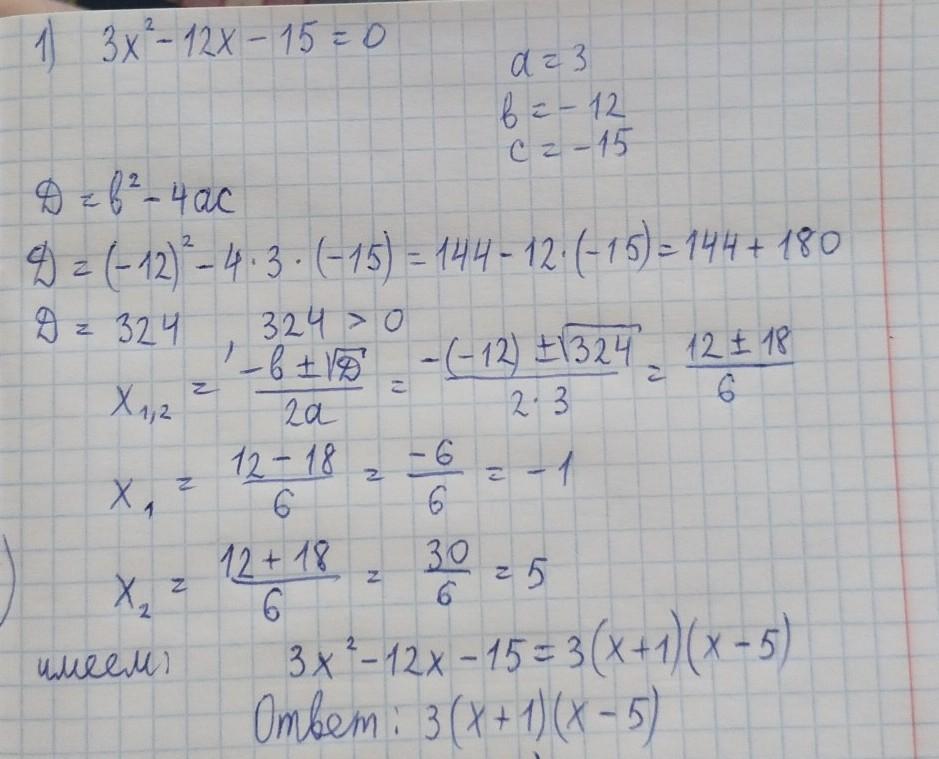 1) 3x² - 12x - 15 = 0
a = 3
b = - 12
c = -15
D = b² - 4ac
D = (-12)² - 4 · 3 · (-15) = 144 - 12 · (-15) = 144 + 180
D = 324 , 324 > 0
x₁,₂ = (-b ± √D)/(2a) = (-(-12) ± √324)/(2 · 3) = (12 ± 18)/6
x₁ = (12 - 18)/6 = (-6)/6 = - 1
x₂ = (12 + 18)/6 = 30/6 = 5
имеем: 3x² - 12x - 15 = 3(x + 1)(x - 5)
Ответ: 3(x + 1)(x - 5)